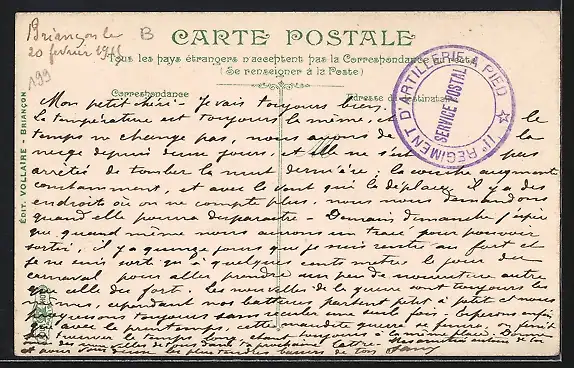 Briançon le
20 fevrier 19
B
199
CARTE POSTALE
Tous les pays étrangers n'acceptent pas la Correspondance au recto
(Se renseigner à la Poste)
Correspondance
Adresse du destinataire
11e REGIMENT D'ARTILLERIE A PIED
SERVICE POSTAL
EDIT. VOLLAIRE - BRIANÇON
Mon petit chéri - Je vais toujours bien,
la température est toujours la même, le
temps ne change pas, nous avons de la
neige depuis deux jours, et elle ne s'est pas
arrêtée de tomber la nuit dernière, la couche augmente
constamment, et avec le vent qui la déplace il y a des
endroits où on ne compte plus. nous nous demandons
quand elle pourra disparaitre - Demain dimanche j'espère
que quand même nous aurons un tracé pour pouvoir
sortir, il y a quinze jours que je suis resté au fort et
je ne suis sorti qu'à quelques cents mètres le jour du
carnaval pour aller prendre un peu de nourriture autre
que celle du fort. Les nouvelles de la guerre sont toujours les
mêmes, cependant nos batteries partent petit à petit et nous
progressons toujours sans reculer une seule fois. Esperons enfin
qu'avec le printemps, cette maudite guerre se finira, on finit
par trouver le temps long étant toujours à la même place. Donne
moi des nouvelles de tous dans ta prochaine lettre. Mes amitiés autour de toi
et avec tous deux les plus tendres baisers de ton